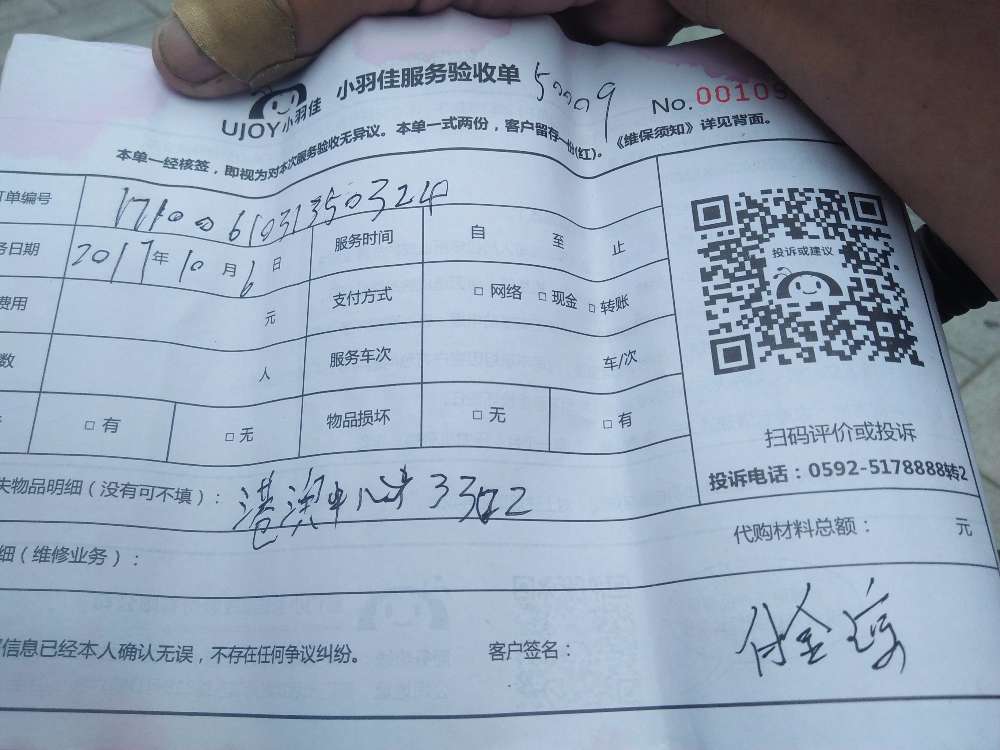 小羽佳服务验收单 50009 No.0010
UJOY小羽佳
本单一经核签，即视为对本次服务验收无异议。本单一式两份，客户留存一份(红)。《维保须知》详见背面。
单编号 171006103135032
日期 2017年10月6日 服务时间 自 至 止
费用 元 支付方式 □网络 □现金 □转账
数 人 服务车次 车/次
□有 □无 物品损坏 □无 □有
投诉或建议
扫码评价或投诉
投诉电话：0592-5178888转2
失物品明细（没有可不填）： 港澳中心
代购材料总额： 元
细（维修业务）：
信息已经本人确认无误，不存在任何争议纠纷。 客户签名：